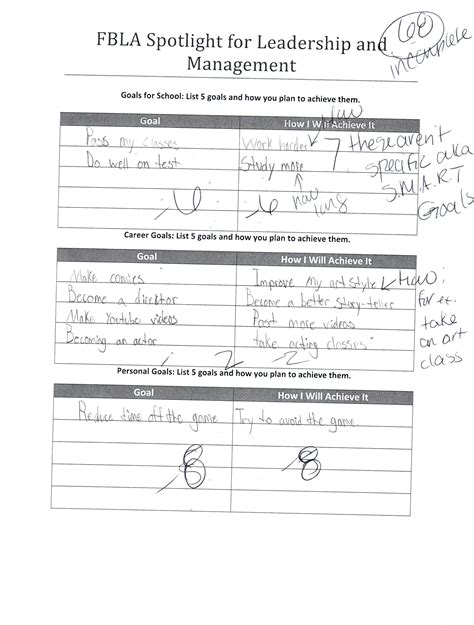 68
FBLA Spotlight for Leadership and
Management
incomplete
Goals for School: List 5 goals and how you plan to achieve them.
How
Goal How I Will Achieve It
Pass my classes Work harder
these aren't
Do well on test Study more
specific aka
S.M.A.R.T
Goals
-6 -6
how
long
Career Goals: List 5 goals and how you plan to achieve them.
Goal How I Will Achieve It
Make comics Improve my art style
How:
for ex.
take
an art
class
Become a director Become a better story-teller
Make Youtube videos Post more videos
Becoming an actor take acting classes
-2 -2
Personal Goals: List 5 goals and how you plan to achieve them.
Goal How I Will Achieve It
Reduce time off the game Try to avoid the game
-8 -8